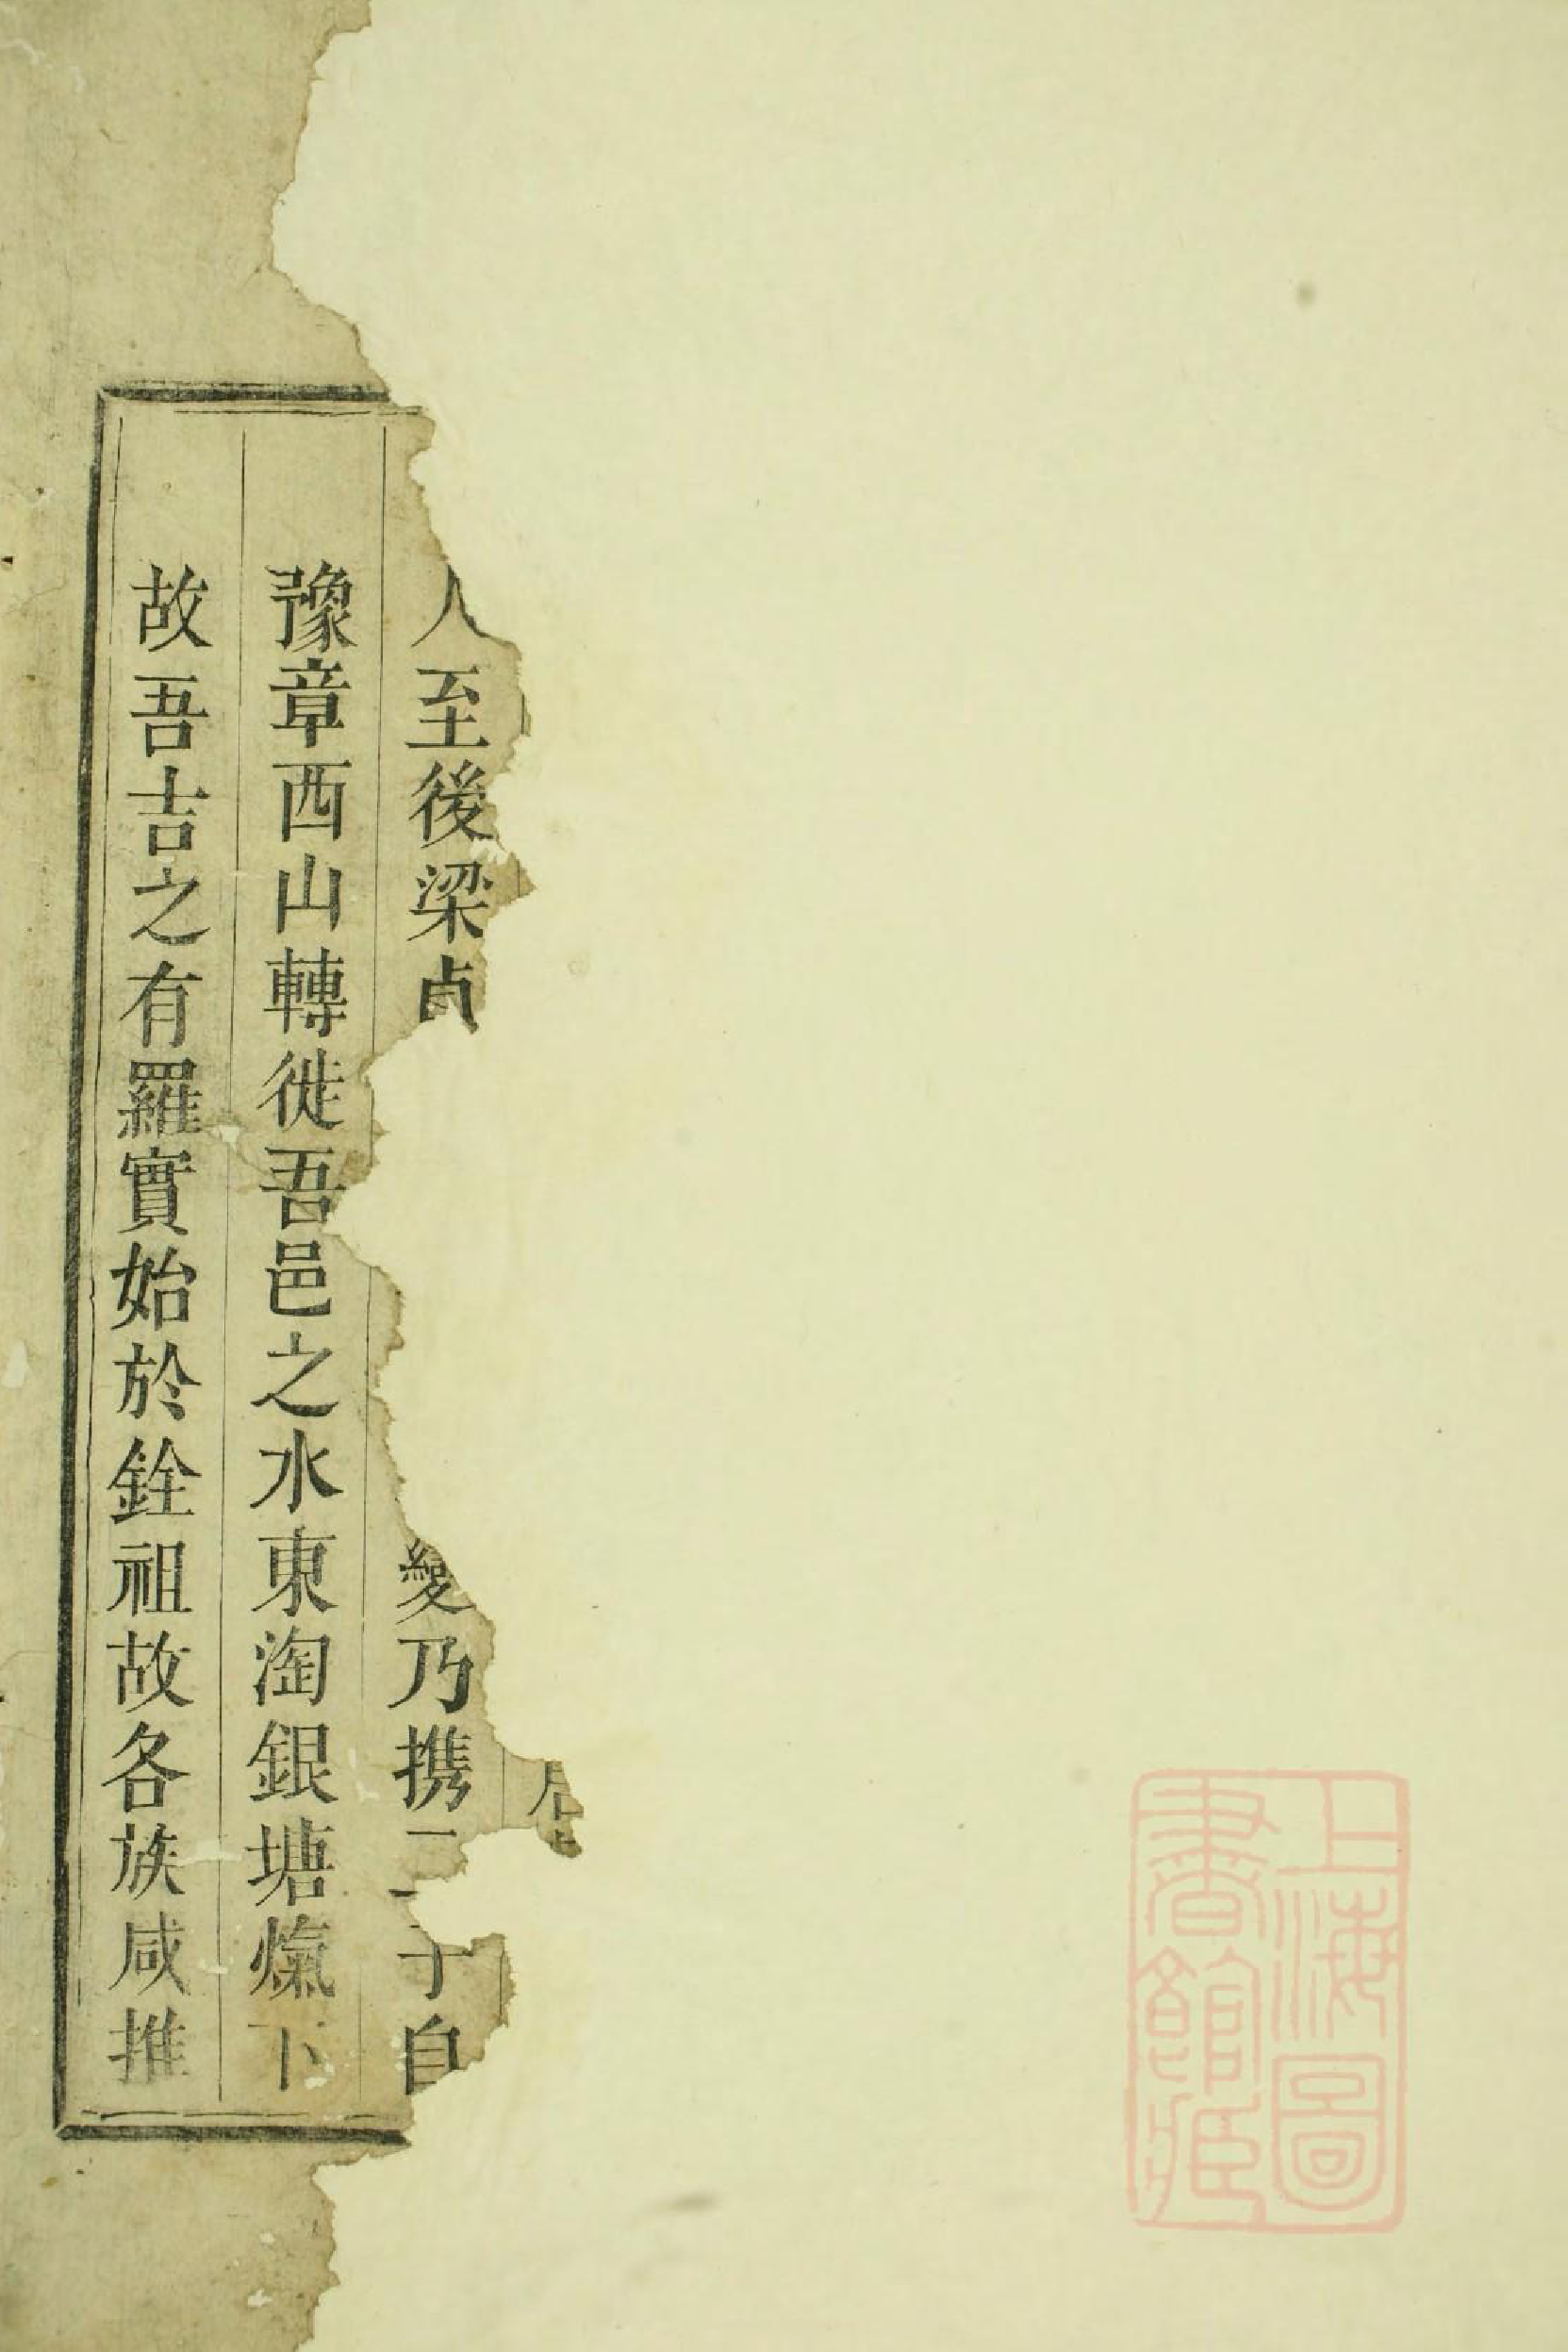 人至後梁貞
變乃携二子自
豫章西山轉徙吾邑之水東淘銀塘㷮下
故吾吉之有羅實始於銓祖故各族咸推
上海圖
書館藏